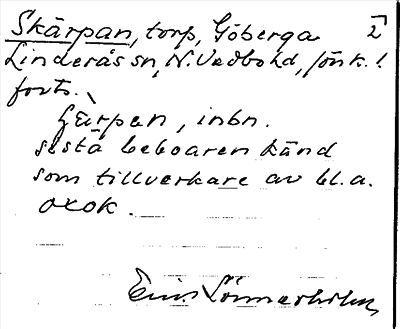 Skärpan, torp, Göberga 2
Linderås sn, N. Vedbo hd, Jönk. l
forts.
Gärpen, inbn.
sista beboaren känd
som tillverkare av bl.a.
oxok.